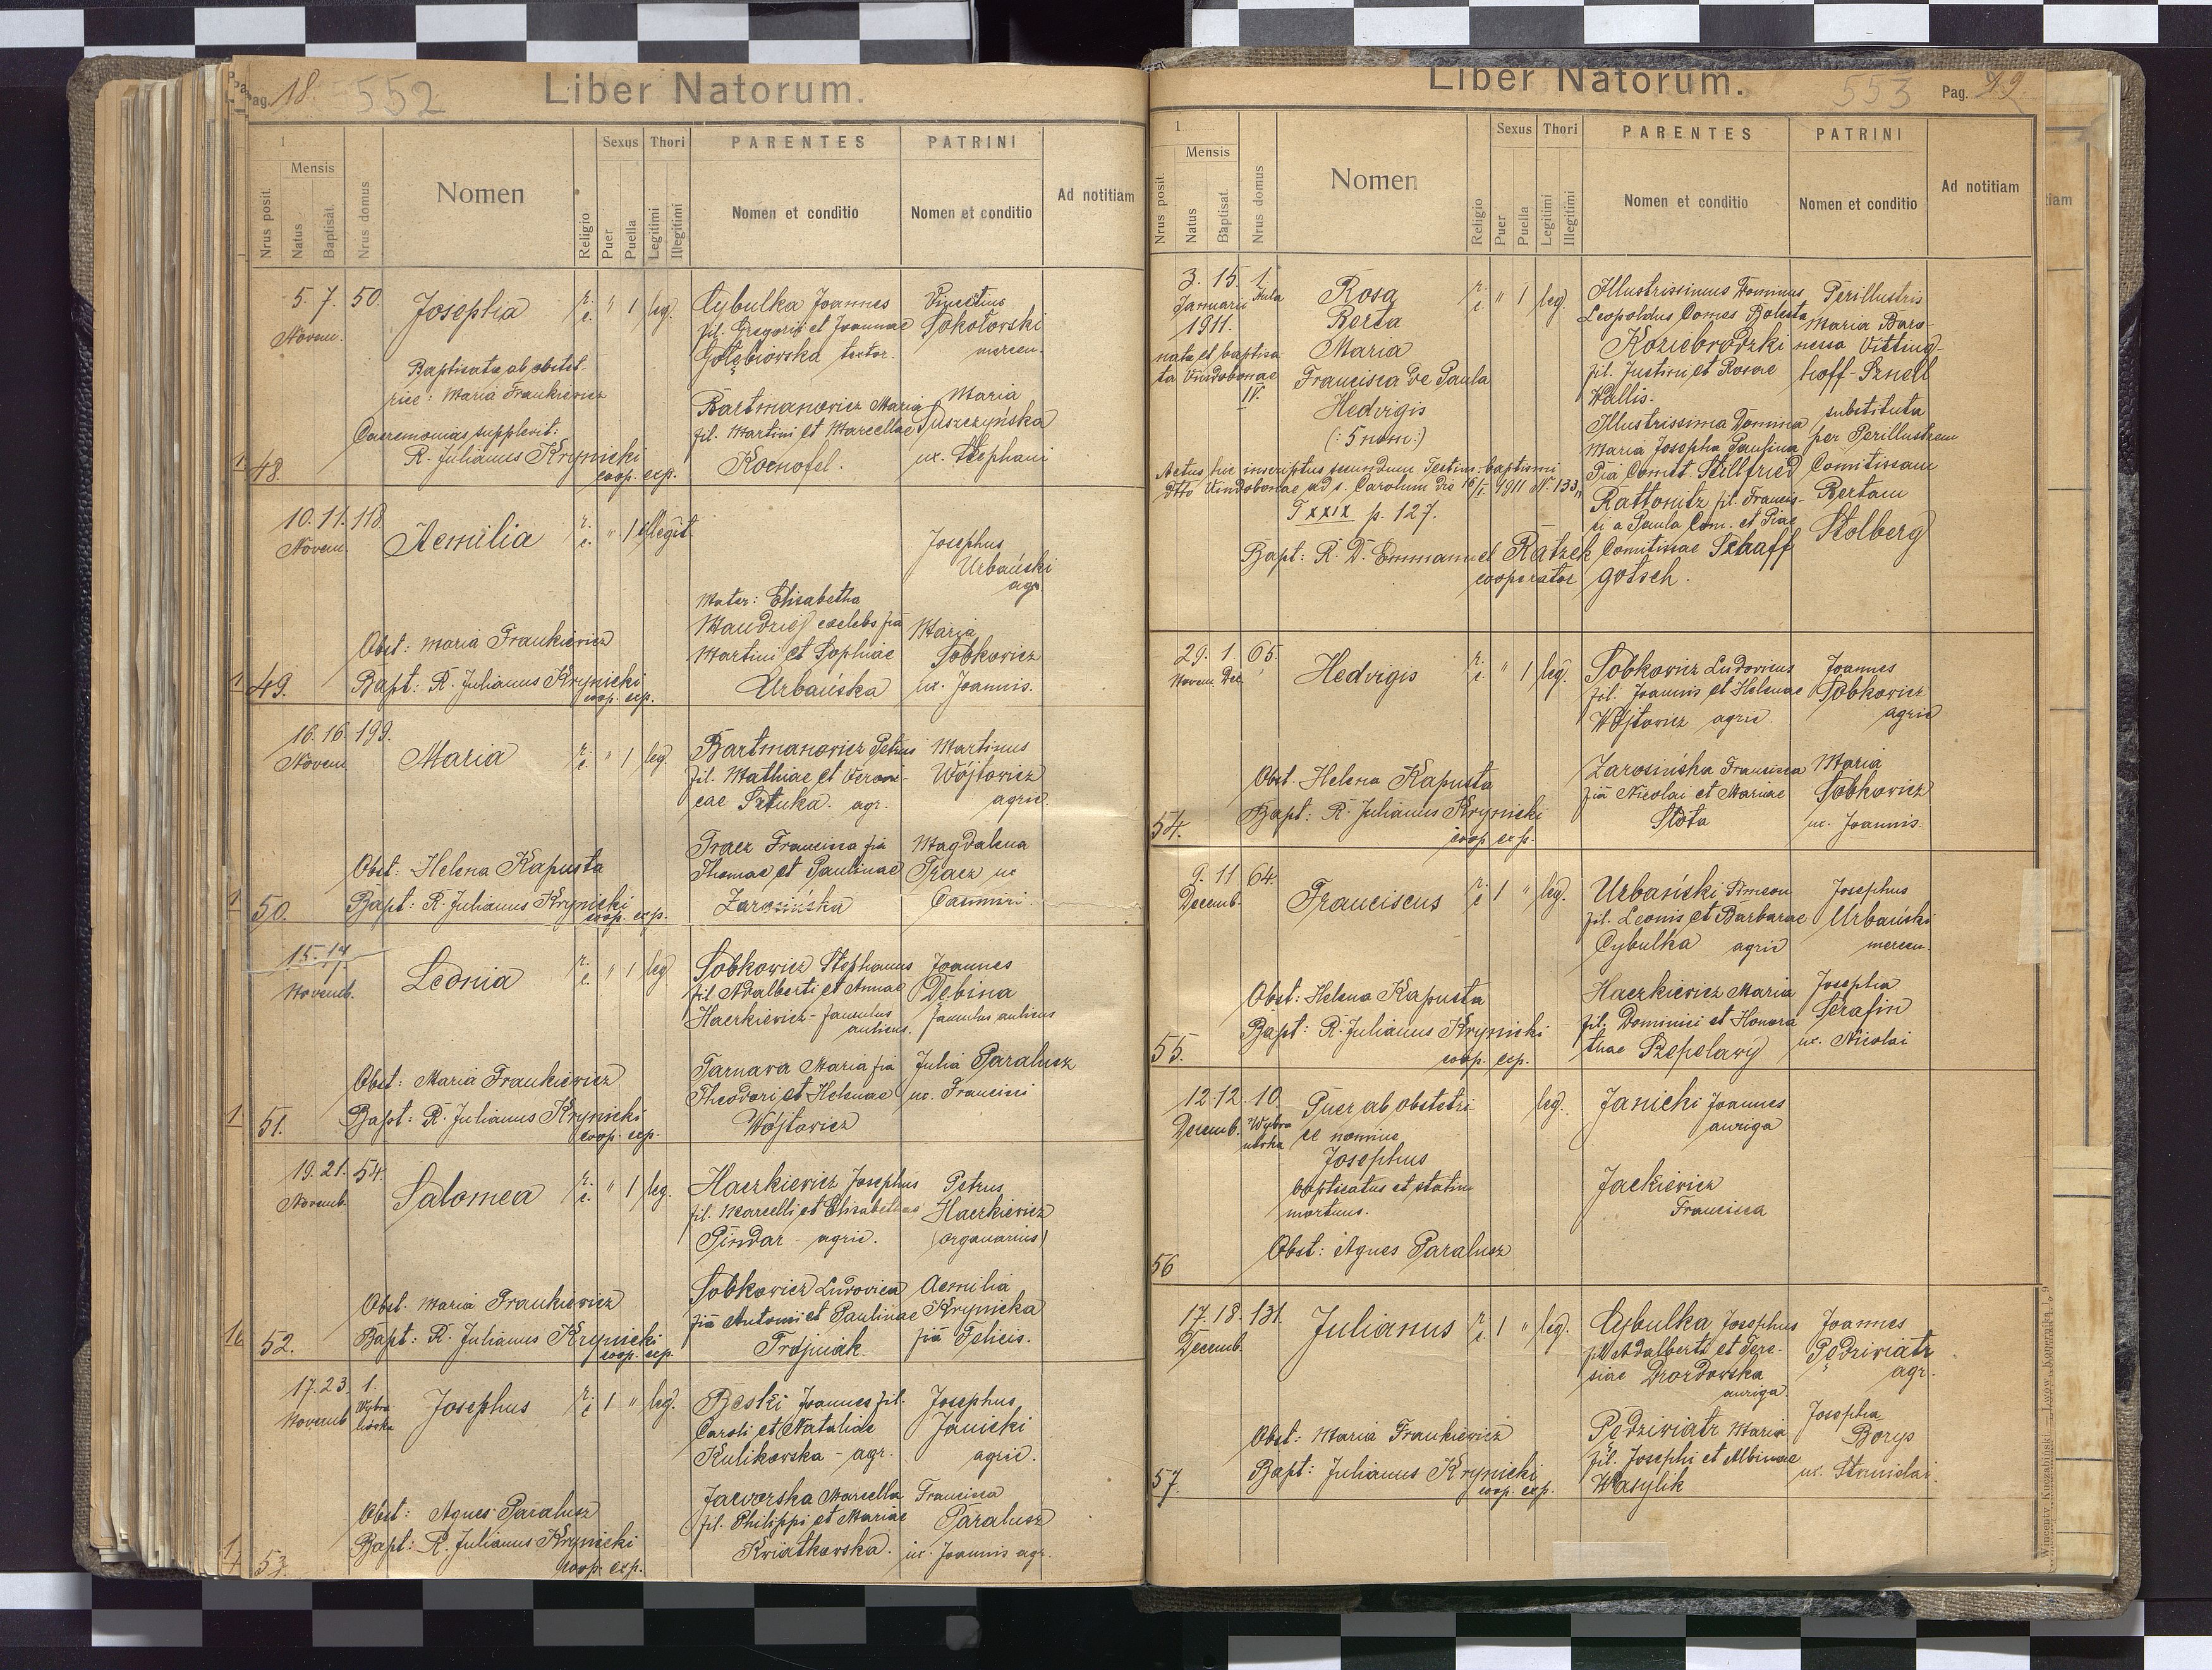 Pag. 18. 552
Liber Natorum.
1
Mensis
Nrus posit.
Natus
Baptisat.
Nrus domus
Nomen
Religio
Sexus
Puer
Puella
Thori
Legitimi
Illegitimi
PARENTES
Nomen et conditio
PATRINI
Nomen et conditio
Ad notitiam
48.
5. 7. 50.
Novem.
Josepha
r. c. " 1 leg.
Baptisata ab obstet-
rice: Maria Frankiewicz
Caeremonias supplevit:
R. Julianus Krynicki
coop. exp.
Cybulka Joannes
fil. Gregorii et Joannae
Gołębiowska textor.
Bartmanowicz Maria
fil. Martini et Marcellae
Kocnofel.
Vincetius
Sokołowski
mercen.
Maria
Suszczyńska
ux. Stephani
49.
10. 11. 118.
Novem.
Aemilia
r. c. " 1 illegit.
Obst: Maria Frankiewicz
Bapt: R. Julianus Krynicki
coop. exp.
Mater: Elisabetha
Maudziej coelebs fia
Martini et Sophiae
Urbańska
Josephus
Urbański
agr.
Maria
Sobkowicz
ux. Joannis.
50.
16. 16. 199.
Novem.
Maria
r. c. " 1 leg.
Obst: Helena Kapusta
Bapt: R. Julianus Krynicki
coop. exp.
Bartmanowicz Petrus
fil. Mathiae et Veroni-
cae Sztuka. agr.
Tracz Francisca fia
Thomae et Paulinae
Zarosińska
Martinus
Wójtowicz
agric.
Magdalena
Tracz ux
Casimiri.
51.
15. 17.
Novemb.
Leonia
r. c. " 1 leg
Obst: Maria Frankiewicz
Bapt: R. Julianus Krynicki
coop. exp.
Sobkowicz Stephanus
fil Adalberti et Annae
Haczkiewicz - famulus
aulicus.
Tarnawa Maria fia
Theodori et Helenae
Wójtowicz
Joannes
Dębina
famulus aulicus
Julia Paralusz
ux. Francisci
52.
19. 21. 54.
Novemb.
Salomea
r. c. " 1 leg.
Obst. Maria Frankiewicz
Bapt: R. Julianus Krynicki
coop. exp.
Haczkiewicz Josephus
fil. Marcelli et Elisabethae
Pindar - agric.
Sobkowicz Ludovica
fia Antonii et Paulinae
Trojniak
Petrus
Haczkiewicz
(organarius)
Aemilia
Krynicka
fia Felicis.
53.
17. 23. 1.
Novemb
Josephus
r. c 1 " leg.
Obst: Agnes Paralusz
Bapt: R. Julianus Krynicki
coop. exp.
Beski Joannes fil.
Caroli et Nataliae
Kulikowska - agr.
Jaworska Marcella
fil. Philippi et Mariae
Kwiatkowska.
Josephus
Janicki
agric.
Francisca
Paralusz
ux. Joannis agr.
Liber Natorum.
553 Pag. 19.
1
Mensis
Nrus posit.
Natus
Baptisat.
Nrus domus
Nomen
Religio
Sexus
Puer
Puella
Thori
Legitimi
Illegitimi
PARENTES
Nomen et conditio
PATRINI
Nomen et conditio
Ad notitiam
3. 15. 1.
Januarii Aula
1911.
nata et baptisa
ta Vindobonae
IV.
Rosa
Berta
Maria
Francisca de Paula
Hedvigis
(: 5 nom :)
r. c. " 1 leg.
Actus hic inscriptus secundum Testim. baptismi
dtto Vindobonae ad s. Carolum die 16/I. 1911 N. 133,
T XXIX p. 127.
Bapt: R. D. Emmanuel Ratzek
cooperator
Illustrissimus Dominus
Leopoldus Comes Bolesta
Koziebrodzki
fil. Justini et Rosae
Wallis.
Illustrissima Domina
Maria Josepha Paulina
Pia Comit. Stillfried
Rattonitz fil. Francis-
ci a Paula Com. et Piae
Comitinae Schaff
gotsch.
Perillustris
Maria Baro-
nessa Vitting-
hoff-Sznell
substituta
per Perillustrem
Comitissam
Bertam
Stolberg
54.
29. 1. 65.
Novem. Dec.
Hedvigis
r. c. " 1 leg.
Obst. Helena Kapusta
Bapt: R. Julianus Krynicki
coop. exp.
Sobkowicz Ludovicus
fil. Joannis et Helenae
Wójtowicz agric.
Zarosińska Francisca
fia Nicolai et Mariae
Słota
Joannes
Sobkowicz
agric
Maria
Sobkowicz
ux. Joannis.
55.
9. 11 64.
Decemb.
Franciscus
r. c 1 " leg.
Obst: Helena Kapusta
Bapt: R. Julianus Krynicki
coop. exp.
Urbański Simeon
fil. Leonis et Barbarae
Cybulka agric
Haczkiewicz Maria
fil. Dominici et Honora
thae Szepelawy
Josephus
Urbański
mercen.
Josepha
Serafin
ux. Nicolai
56
12 12 10.
Decemb.
Puer ab obstetri
ce nomine
Josephus
baptisatus et statim
mortuus.
leg.
Obst: Agnes Paralusz
Janicki Joannes
auriga
Jackiewicz
Francisca
57.
17. 18. 131.
Decemb.
Julianus
r. c. 1 " leg.
Obst: Maria Frankiewicz
Bapt: Julianus Krynicki
coop. exp.
Cybulka Josephus
fil Adalberti et Tere-
siae Drozdowska
auriga.
Pędziwiatr Maria
fil. Josephi et Albinae
Wasylik
Joannes
Pędziwiatr
agr.
Josepha
Borys
ux. Stanislai.